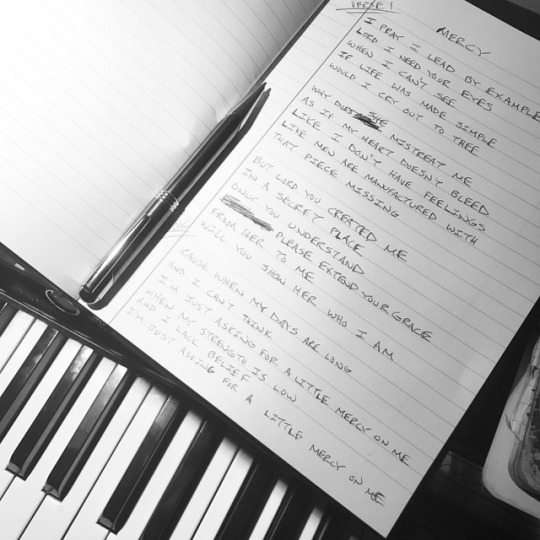 VERSE 1
MERCY
I PRAY I LEAD BY EXAMPLE
LORD I NEED YOUR EYES
WHEN I CAN'T SEE
IF LIFE WAS MADE SIMPLE
WOULD I CRY OUT TO THEE
WHY DOES SHE MISTREAT ME
AS IF MY HEART DOESN'T BLEED
LIKE I DON'T HAVE FEELINGS
LIKE MEN ARE MANUFACTURED WITH
THAT PIECE MISSING
BUT LORD YOU CREATED ME
IN A SECRET PLACE
ONLY YOU UNDERSTAND
PLEASE EXTEND YOUR GRACE
FROM HER TO ME
WILL YOU SHOW HER WHO I AM
CAUSE WHEN MY DAYS ARE LONG
AND I CAN'T THINK
I'M JUST ASKING FOR A LITTLE MERCY ON ME
WHEN MY STRENGTH IS LOW
AND I LACK BELIEF
I'M JUST ASKING FOR A LITTLE MERCY ON ME